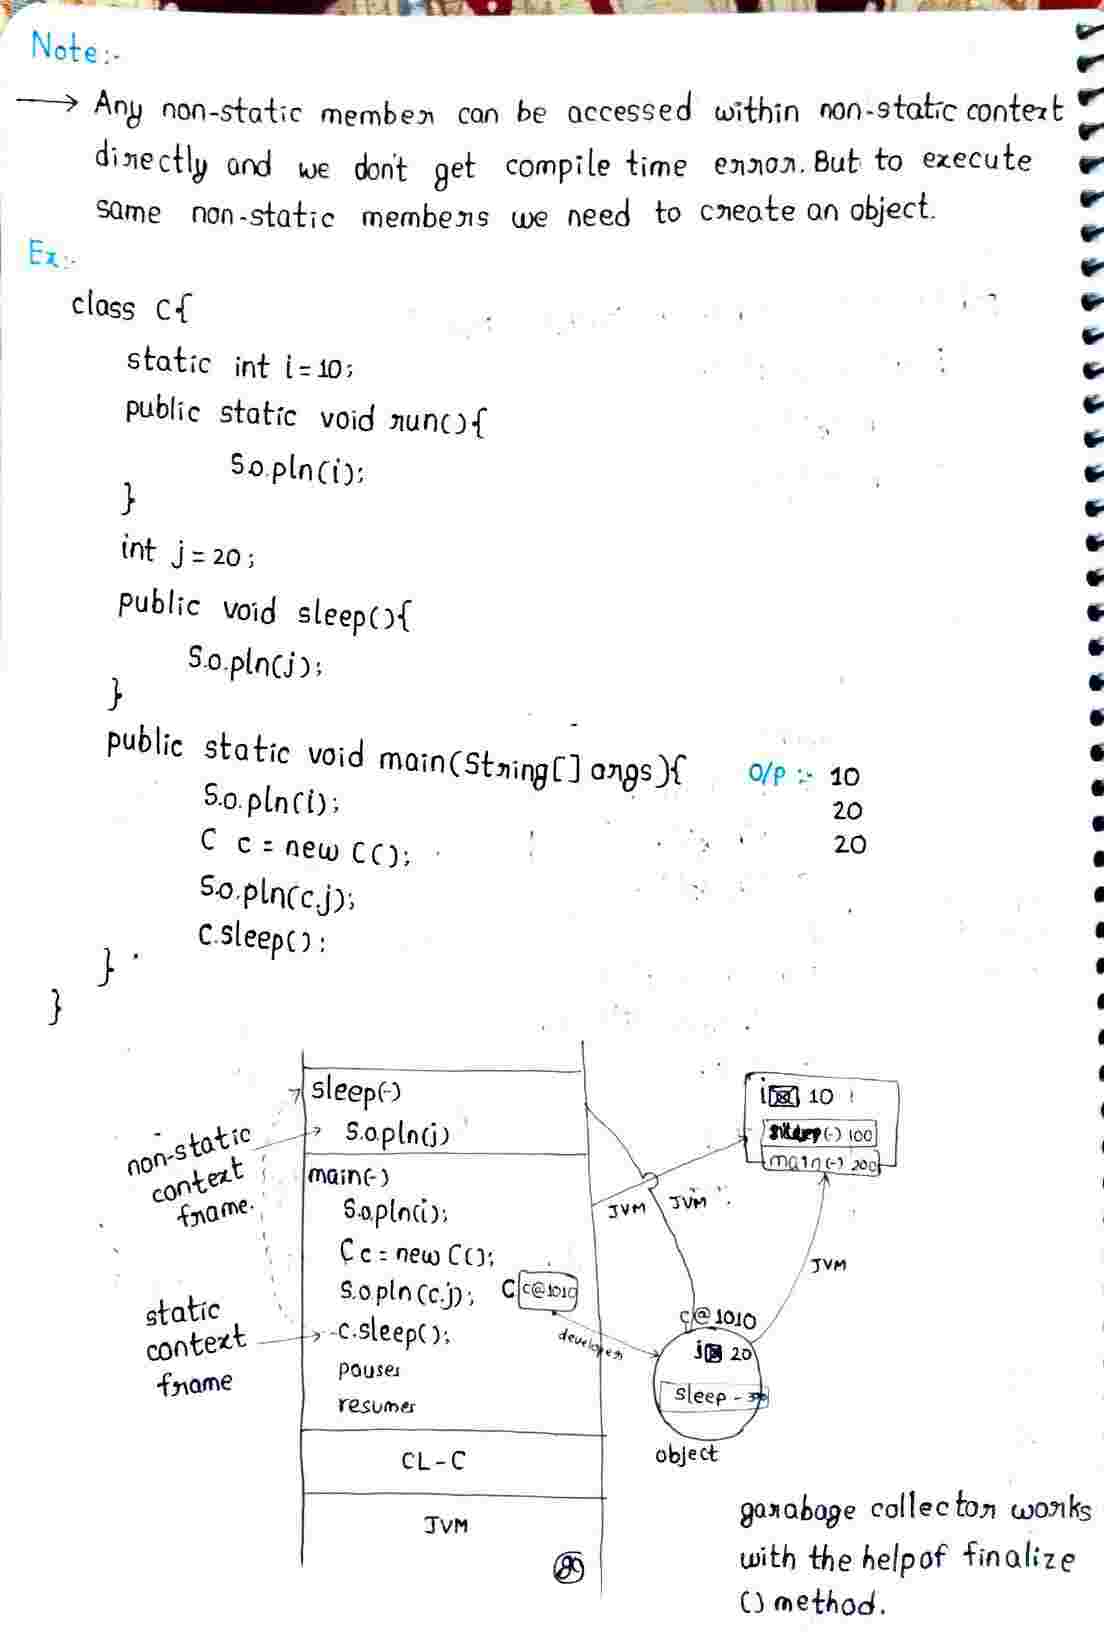 Note:-
→ Any non-static member can be accessed within non-static context
directly and we don't get compile time error. But to execute
same non-static members we need to create an object.
Ex:-
class C{
static int i = 10;
public static void run(){
S.o.pln(i);
}
int j = 20;
public void sleep(){
S.o.pln(j);
}
public static void main(String[] args){
O/P :- 10
20
20
S.o.pln(i);
C c = new C();
S.o.pln(c.j);
c.sleep():
}
}
sleep(-)
S.o.pln(j)
main(-)
S.o.pln(i);
C c = new C();
S.o.pln(c.j);
c.sleep();
pauses
resumes
CL-C
JVM
non-static
context
frame.
static
context
frame
C c@1010
developer
JVM
JVM
JVM
i 10
(-) 100
main(-) 200
c@1010
j 20
sleep -
object
garabage collector works
with the helpof finalize
() method.